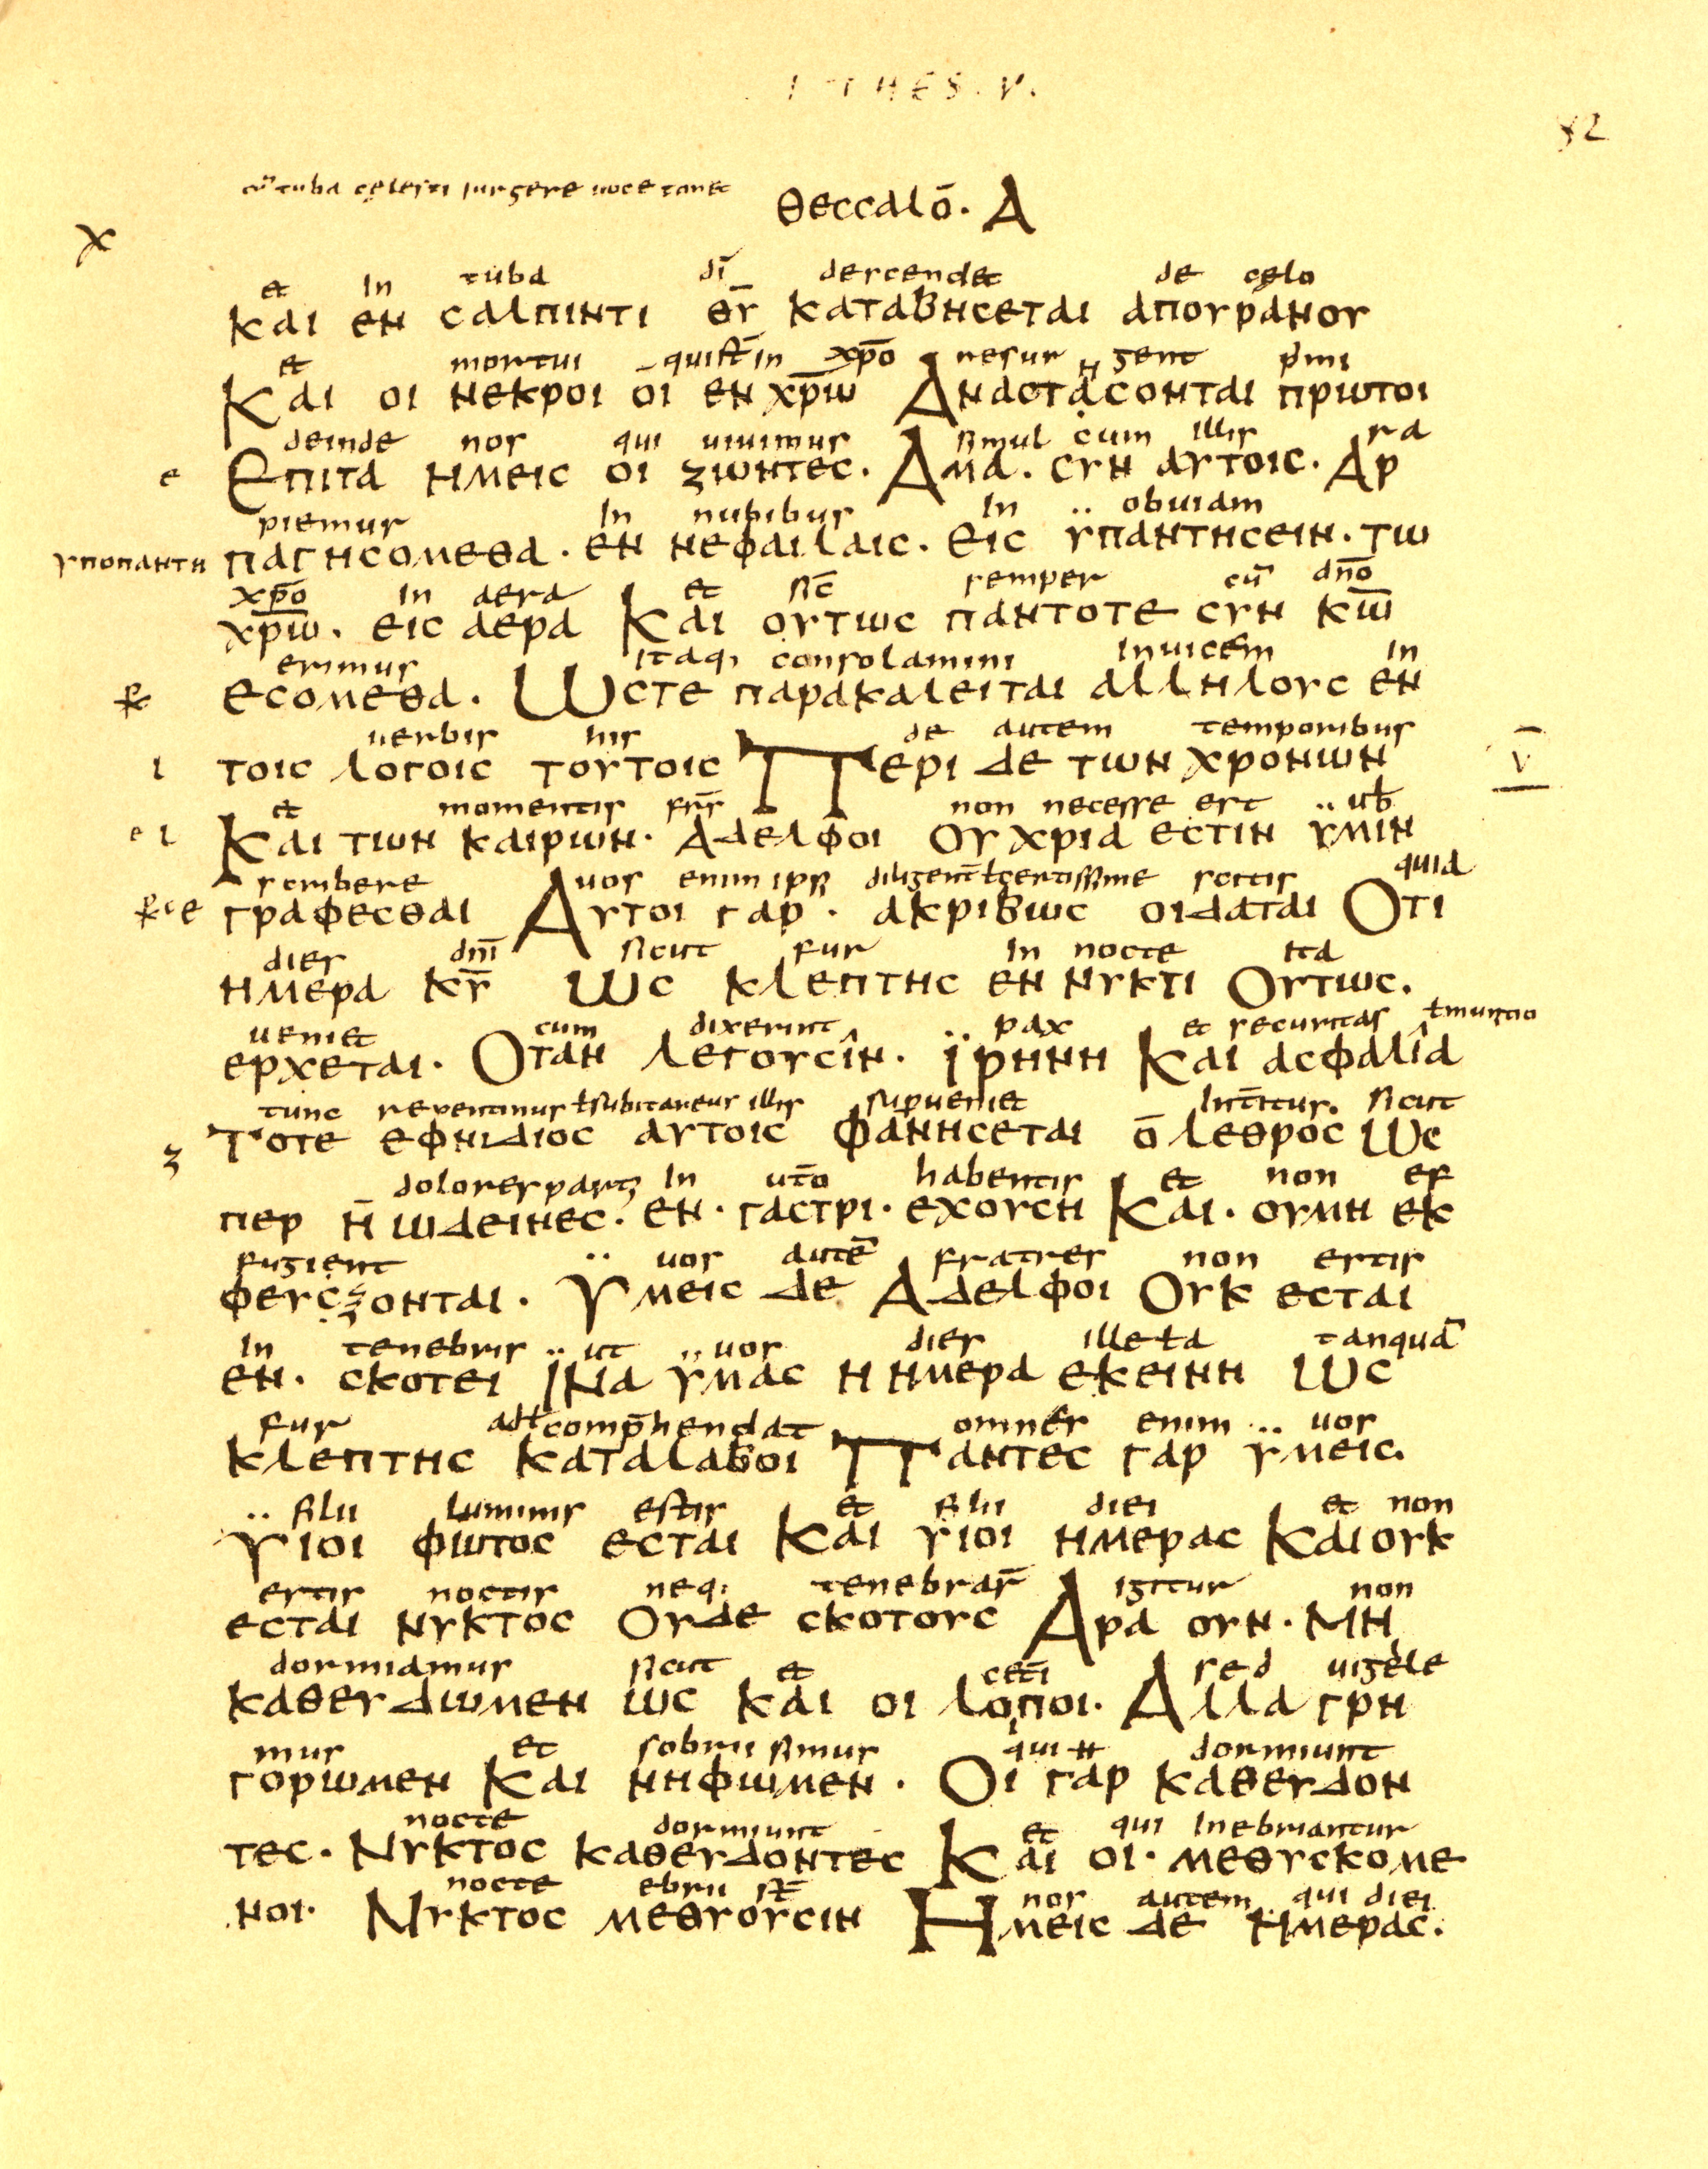 I THES. V.
82
cū tuba celesti surgere uoce tonet
θεccalō. A
x
et In tuba dī descendet de celo
Και εν cαλπιντι θ̅υ̅ καταβηcεται απουρανου
et mortui quis̅t̅ In xp̅o resur gent pimi
η
Και οι νεκροι οι εν χρ̅ω̅ Αναcταcονται πρωτοι
deinde nos qui uiuimus simul cum illis ra
e Επιτα ημειc οι ζωντεc. Αμα. cυν αυτοιc. Αρ
piemur In nubibus In obuiam
υποπαντη παγηcομεθα. εν νεφαιλαιc. Ειc υπαντηcειν. τω
xp̅o In aera et sic̅ semper cū dn̅o
χρ̅ω̅. ειc αερα Και ουτωc παντοτε cυν κ̅ω̅
erimus Itaq; consolamini Inuicem In
εcομεθα. Ωcτε παρακαλειται αλληλουc εν
uerbis his de autem temporibus
ι τοιc λογοιc τουτοιc Περι δε των χρονων
V
et momentis fr̅s̅ non necesse est uob̅
ε ι Και τιων καιρων. Αδελφοι ου χρια εcτιν ϋμιν
scribere uos enim ipsi diligent̅ ł certissime scitis quia
γραφεcθαι Αυτοι γαρ. ακριβωc οιδαται Οτι
dies dn̅i sicut fur In nocte ita
ημερα κ̅υ̅ Ωc κλεπτηc εν νυκτι Ουτωc.
ueniet cum dixerint pax et securitas ł munitio
ερχεται. Οταν λεγουcιν. ϊρηνη Και αcφαλια
tunc repentinus ł subitaneus illis supueniet Int̅itus. sicut
ζ Τοτε εφνιδιοc αυτοιc Φανηcεται ο̅ λεθροc Ωc
dolores partus In ut̅o habentis et non ef
περ η̅ ωδεινεc. εν. γαcτρι. εχουcη Και. ουμη εκ
fugient uos autē fratres non estis
ξ
φευcξονται. Ϋμειc δε Αδελφοι Ουκ εcται
In tenebris ut uos dies ille ł a tanquā
εν. cκοτει Ϊνα ϋμαc η ημερα εκεινη Ωc
fur adł comp̅hendat omnes enim uos
κλεπτηc καταλαβοι Παντεc γαρ ϋμειc.
filii luminis estis et filii diei et non
Ϋιοι φωτοc εcται Και υιοι ημεραc Καιουκ
estis noctis neq; tenebrar̅ igitur non
εcται νυκτοc Ουδε cκοτουc Αρα ουν. ΜΗ
dormiamus sicut et cet̅i sed uigile
καθευδωμεν ωc και οι λοποι. Αλλα γρη
ι
mus et sobrii simus qui dormiunt
γορωμεν Και νηφωμεν. Οι γαρ καθευδον
nocte dormiunt et qui Inebriantur
τεc. Νυκτοc καθευδοντεc Και οι. μεθυcκομε
nocte ebrii s̅t̅ nos autem qui diei
νοι. Νυκτοc μεθυουcιν Ημειc δε ημεραc.